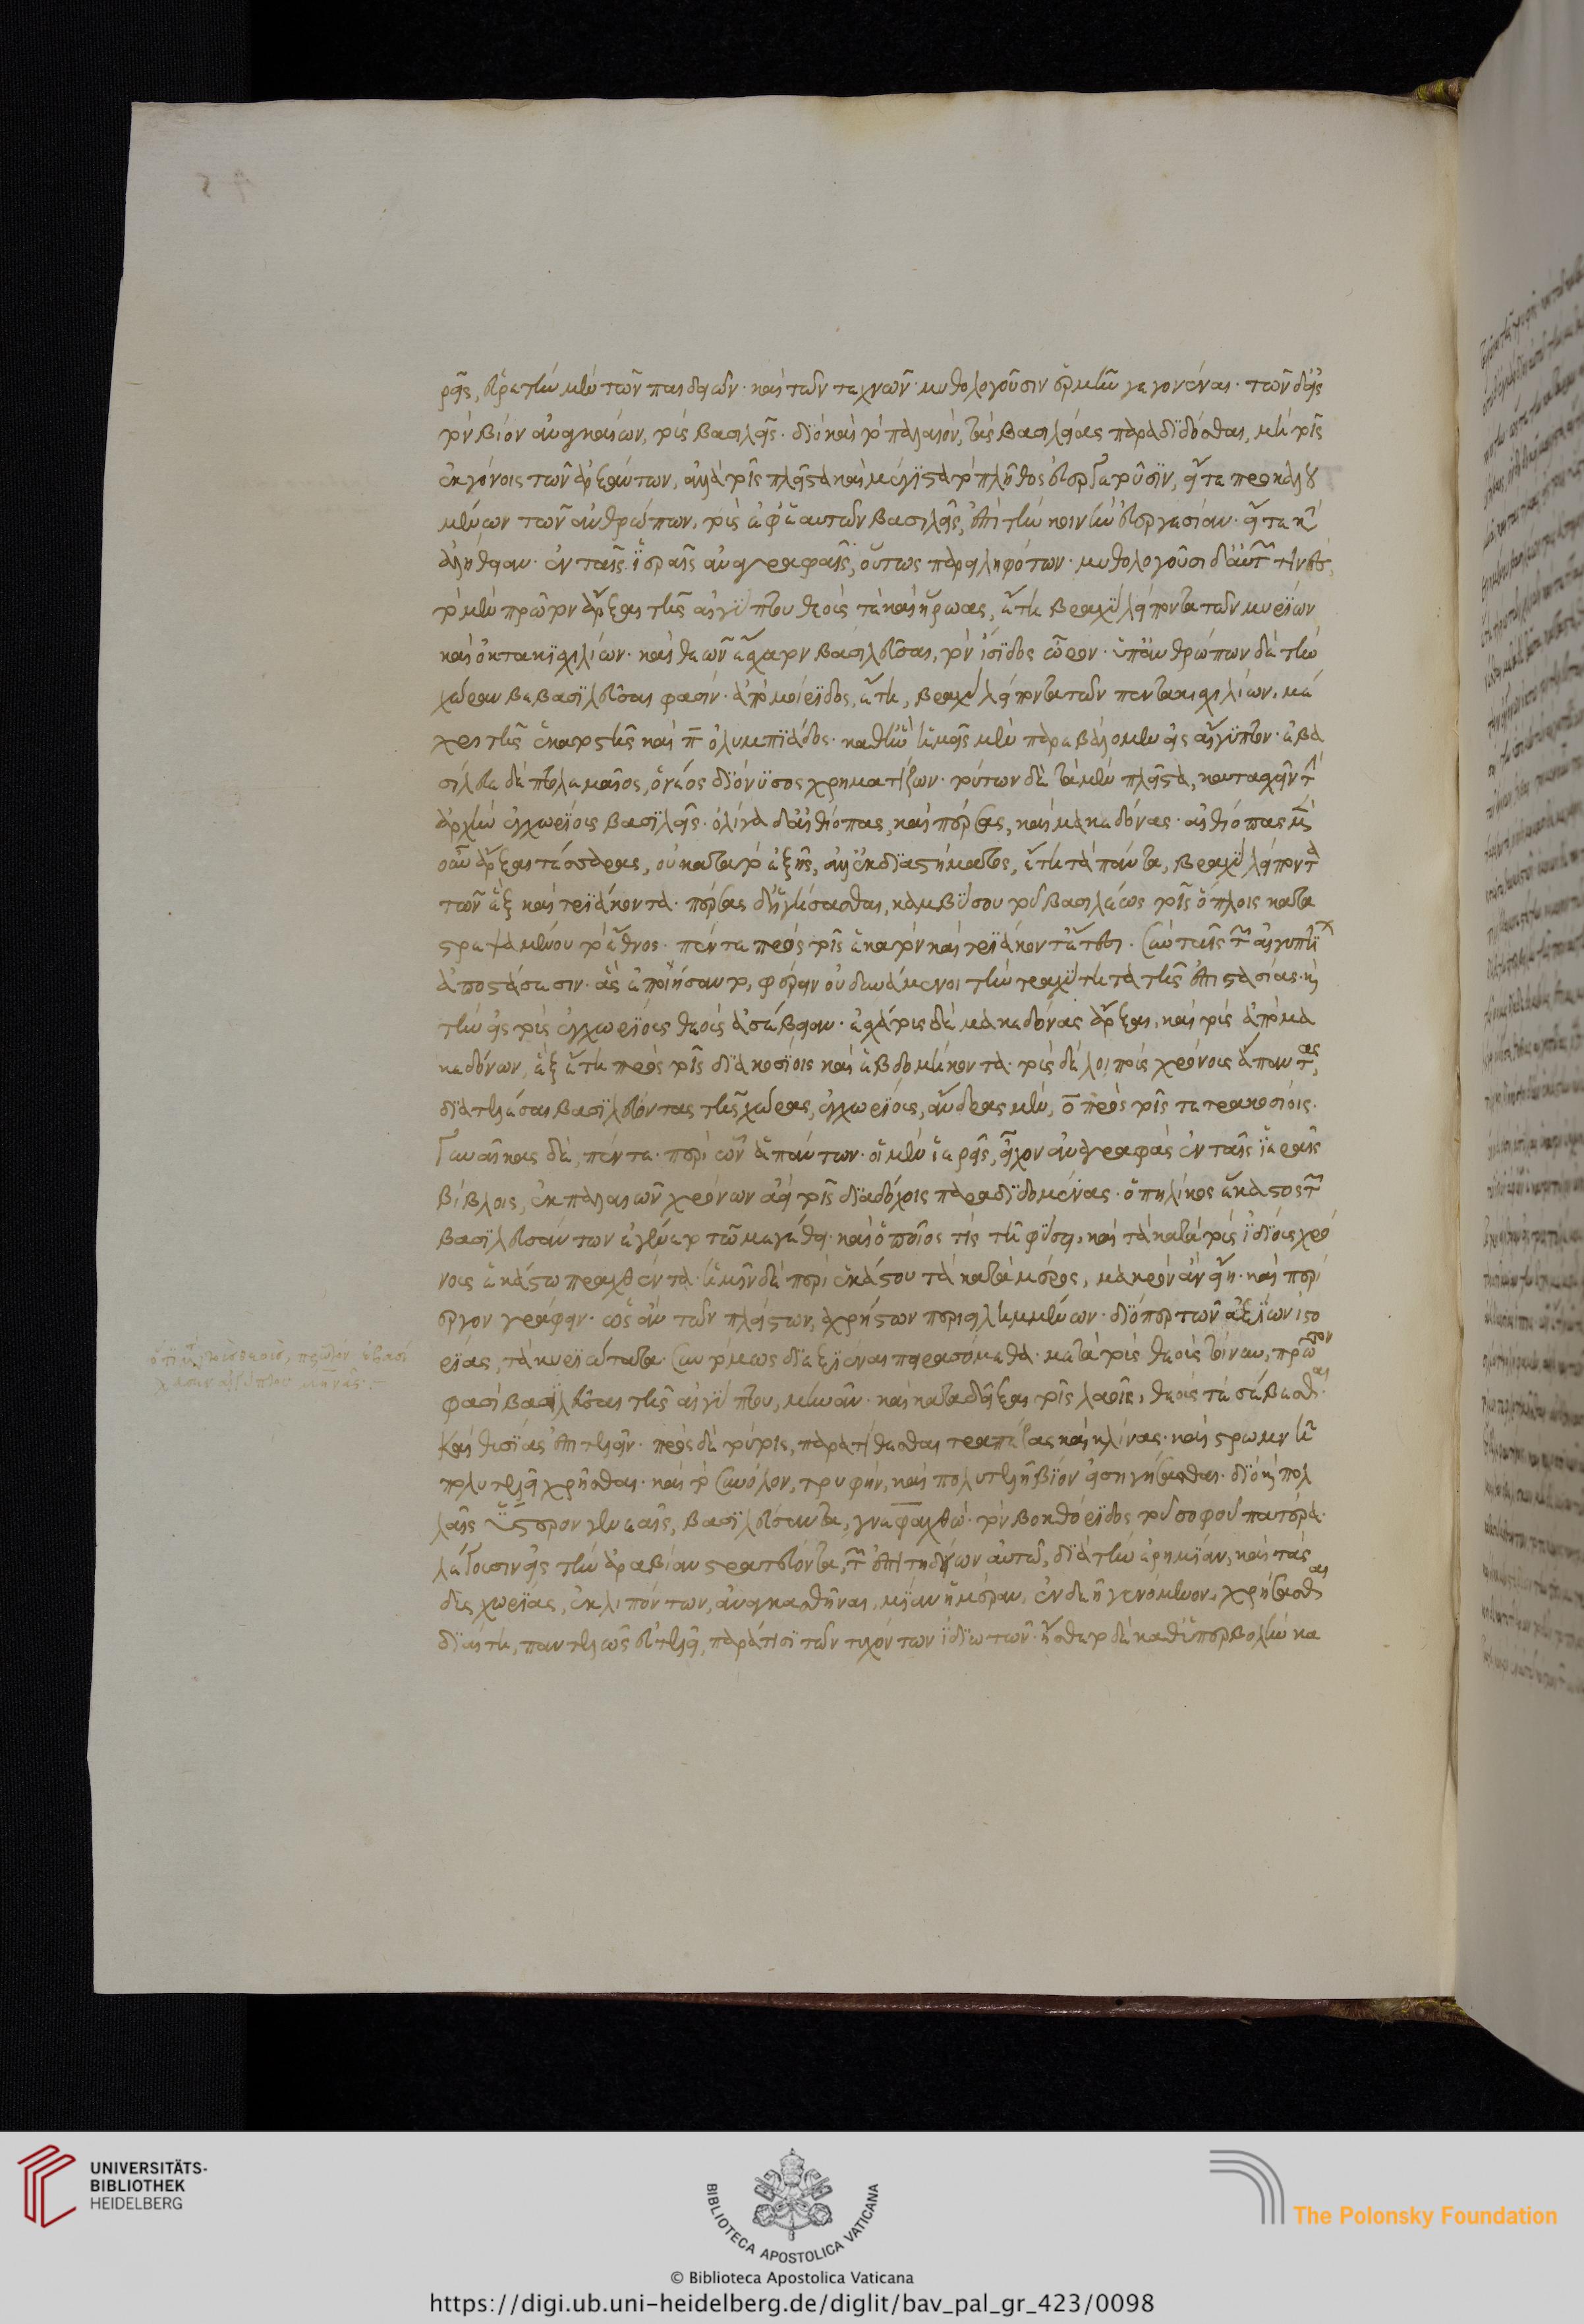 ρεῖς, εὑρετὴν μὲν τῶν παιδειῶν· καὶ τῶν τεχνῶν· μυθολογοῦσιν ἑρμῆν γεγονέναι· τῶν δ' εἰς
τὸν βίον ἀναγκαίων, τοὺς βασιλεῖς· διὸ καὶ τὸ παλαιὸν, τὰς βασιλείας παραδίδοσθαι, μὴ τοῖς
ἐκγόνοις τῶν ἀρξάντων, ἀλλὰ τοῖς πλεῖστα καὶ μέγιστα τὸ πλῆθος εὐεργετοῦσιν, εἴτε προκαλου
μένων τῶν ἀνθρώπων, τοὺς ἐφ' ἑαυτῶν βασιλεῖς, ἐπὶ τὴν κοινὴν εὐεργεσίαν· εἴτε κατ'
ἀλήθειαν· ἐν ταῖς ἱεραῖς ἀναγραφαῖς, οὕτως παρειληφότων· μυθολογοῦσι δ' αὐτῶν τινες,
τὸ μὲν πρῶτον ἄρξαι τῆς αἰγύπτου θεοὺς τε καὶ ἥρωας, ἔτη βραχὺ λείποντα τῶν μυρίων
καὶ ὀκτακισχιλίων· καὶ θεῶν ἔσχατον βασιλεῦσαι, τὸν ἴσιδος ὧρον· ὑπ' ἀνθρώπων δὲ τὴν
χώραν βεβασιλεῦσθαι φασὶν· ἀπὸ μοίριδος, ἔτη, βραχὺ λείποντα τῶν πεντακισχιλίων, μέ
χρι τῆς ἑκατοστῆς καὶ π ὀλυμπιάδος· καθ' ἣν ἡμεῖς μὲν παρεβάλομεν εἰς αἴγυπτον· ἐβα
σίλευε δὲ πτολεμαῖος, ὁ νέος διόνυσος χρηματίζων· τούτων δὲ τὰ μὲν πλεῖστα, κατασχεῖν τὴν
ἀρχὴν ἐγχωρίους βασιλεῖς· ὀλίγα δ' αἰθίοπας, καὶ πέρσας, καὶ μακεδόνας· αἰθίοπας μὲν
οὖν ἄρξαι τέσσαρας, οὐ κατὰ τὸ ἑξῆς, ἀλλ' ἐκ διαστήματος, ἔτη τὰ πάντα, βραχὺ λείποντα
τῶν ἓξ καὶ τριάκοντα· πέρσας δ' ἡγήσασθαι, καμβύσου τοῦ βασιλέως τοῖς ὅπλοις κατα
στρεψαμένου τὸ ἔθνος· πέντε πρὸς τοῖς ἑκατὸν καὶ τριάκοντ' ἔτεσι· σὺν ταῖς τῶν αἰγυπτίων
ἀποστάσεσιν· ἃς ἐποιήσαντο, φέρειν οὐ δυνάμενοι τὴν τραχύτητα τῆς ἐπιστασίας· καὶ
τὴν εἰς τοὺς ἐγχωρίους θεοὺς ἀσέβειαν· ἐσχάτους δὲ μακεδόνας ἄρξαι, καὶ τοὺς ἀπὸ μα
κεδόνων, ἓξ ἔτη πρὸς τοῖς διακοσίοις καὶ ἑβδομήκοντα· τοὺς δὲ λοιποὺς χρόνους ἅπαντας,
διατελέσαι βασιλεύοντας τῆς χώρας, ἐγχωρίους, ἄνδρας μὲν, ο πρὸς τοῖς τετρακοσίοις·
γυναῖκας δὲ, πέντε· περὶ ὧν ἁπάντων· οἱ μὲν ἱερεῖς, εἶχον ἀναγραφὰς ἐν ταῖς ἱεραῖς
βίβλοις, ἐκ παλαιῶν χρόνων ἀεὶ τοῖς διαδόχοις παραδιδομένας· ὁπηλίκος ἕκαστος τῶν
βασιλευσάντων ἐγένετο τῷ μεγέθει· καὶ ὁποῖός τις τῇ φύσει, καὶ τὰ κατὰ τοὺς ἰδίους χρό
νους ἑκάστῳ πραχθέντα· ἡμῖν δὲ περὶ ἑκάστου τὰ κατὰ μέρος, μακρὸν ἂν εἴη· καὶ περί
εργον γράφειν· ὡς ἂν τῶν πλείστων, ἀχρήστων περιειλημμένων· διόπερ τῶν ἀξίων ἱστο
ρίας, τὰ κυριώτατα· συντόμως διεξιέναι πειρασόμεθα· μετὰ τοὺς θεοὺς τοίνυν, πρῶτον
φασὶ βασιλεῦσαι τῆς αἰγύπτου, μηνᾶν· καὶ καταδεῖξαι τοῖς λαοῖς, θεούς τε σέβεσθαι·
καὶ θυσίας ἐπιτελεῖν· πρὸς δὲ τούτοις, παρατίθεσθαι τραπέζας καὶ κλίνας· καὶ στρωμνῇ
πολυτελεῖ χρῆσθαι· καὶ τὸ σύνολον, τρυφὴν, καὶ πολυτελῆ βίον εἰσηγήσασθαι· διὸ καὶ πολ
λαῖς ὕστερον γενεαῖς, βασιλεύσαντα, γνεφαχθὼ· τὸν βοκχόριδος τοῦ σοφοῦ πατέρα·
λέγουσιν εἰς τὴν ἀραβίαν στρατεύοντα, τῶν ἐπιτηδείων αὐτῶ, διὰ τὴν ἐρημίαν, καὶ τὰς
δυσχωρίας, ἐκλιπόντων, ἀναγκασθῆναι, μίαν ἡμέραν, ἐνδεῆ γενόμενον, χρήσασθαι
διαίτῃ, παντελῶς εὐτελεῖ, παρά τισι τῶν τυχόντων ἰδιωτῶν· ἡσθέντα δὲ καθ' ὑπερβολὴν κα
UNIVERSITÄTS-
BIBLIOTHEK
HEIDELBERG
BIBLIOTECA APOSTOLICA VATICANA
The Polonsky Foundation
© Biblioteca Apostolica Vaticana
https://digi.ub.uni-heidelberg.de/diglit/bav_pal_gr_423/0098